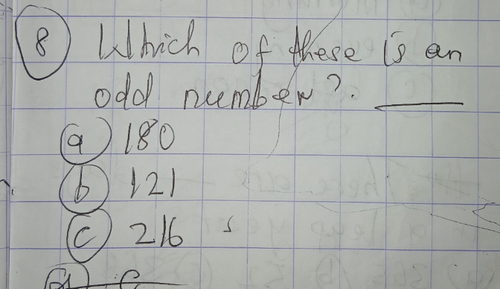 8 Which of these is an
odd number? ____
a 180
b 121
c 216